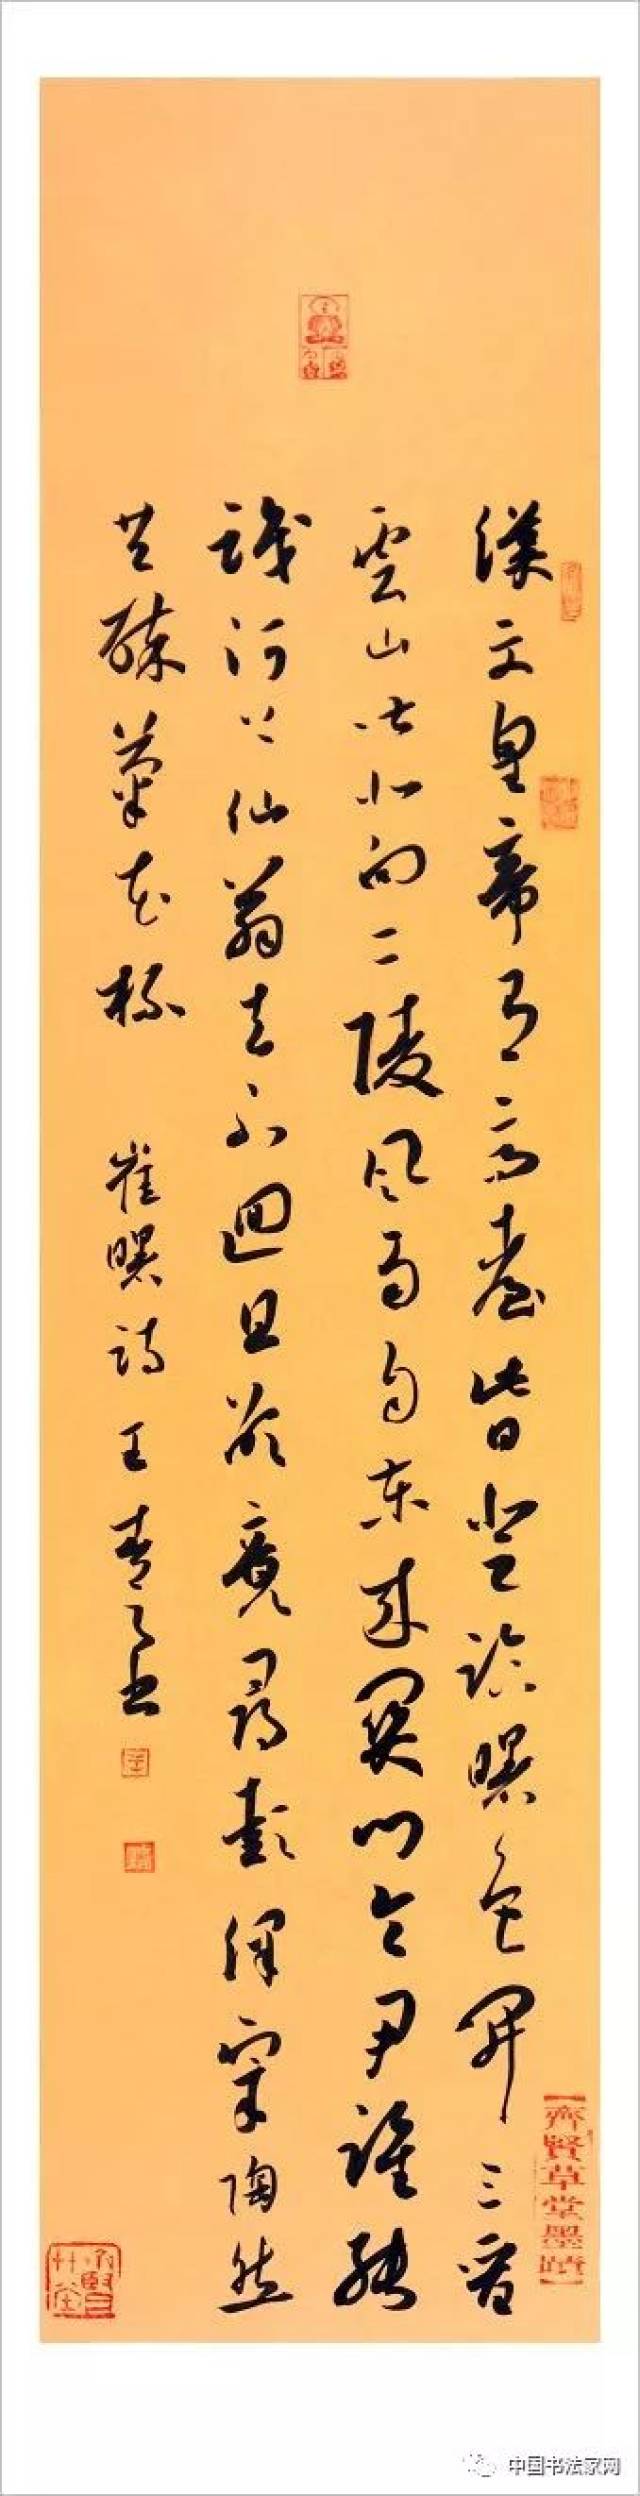 漢文皇帝有高臺此日登臨曙色開三晉
雲山皆北向二陵風雨自東來關門令尹誰能
識河上仙翁去不迴且欲竟尋彭澤宰陶然
共醉菊花杯 崔曙詩 王青之书
【齊賢草堂墨蹟】
中国书法家网